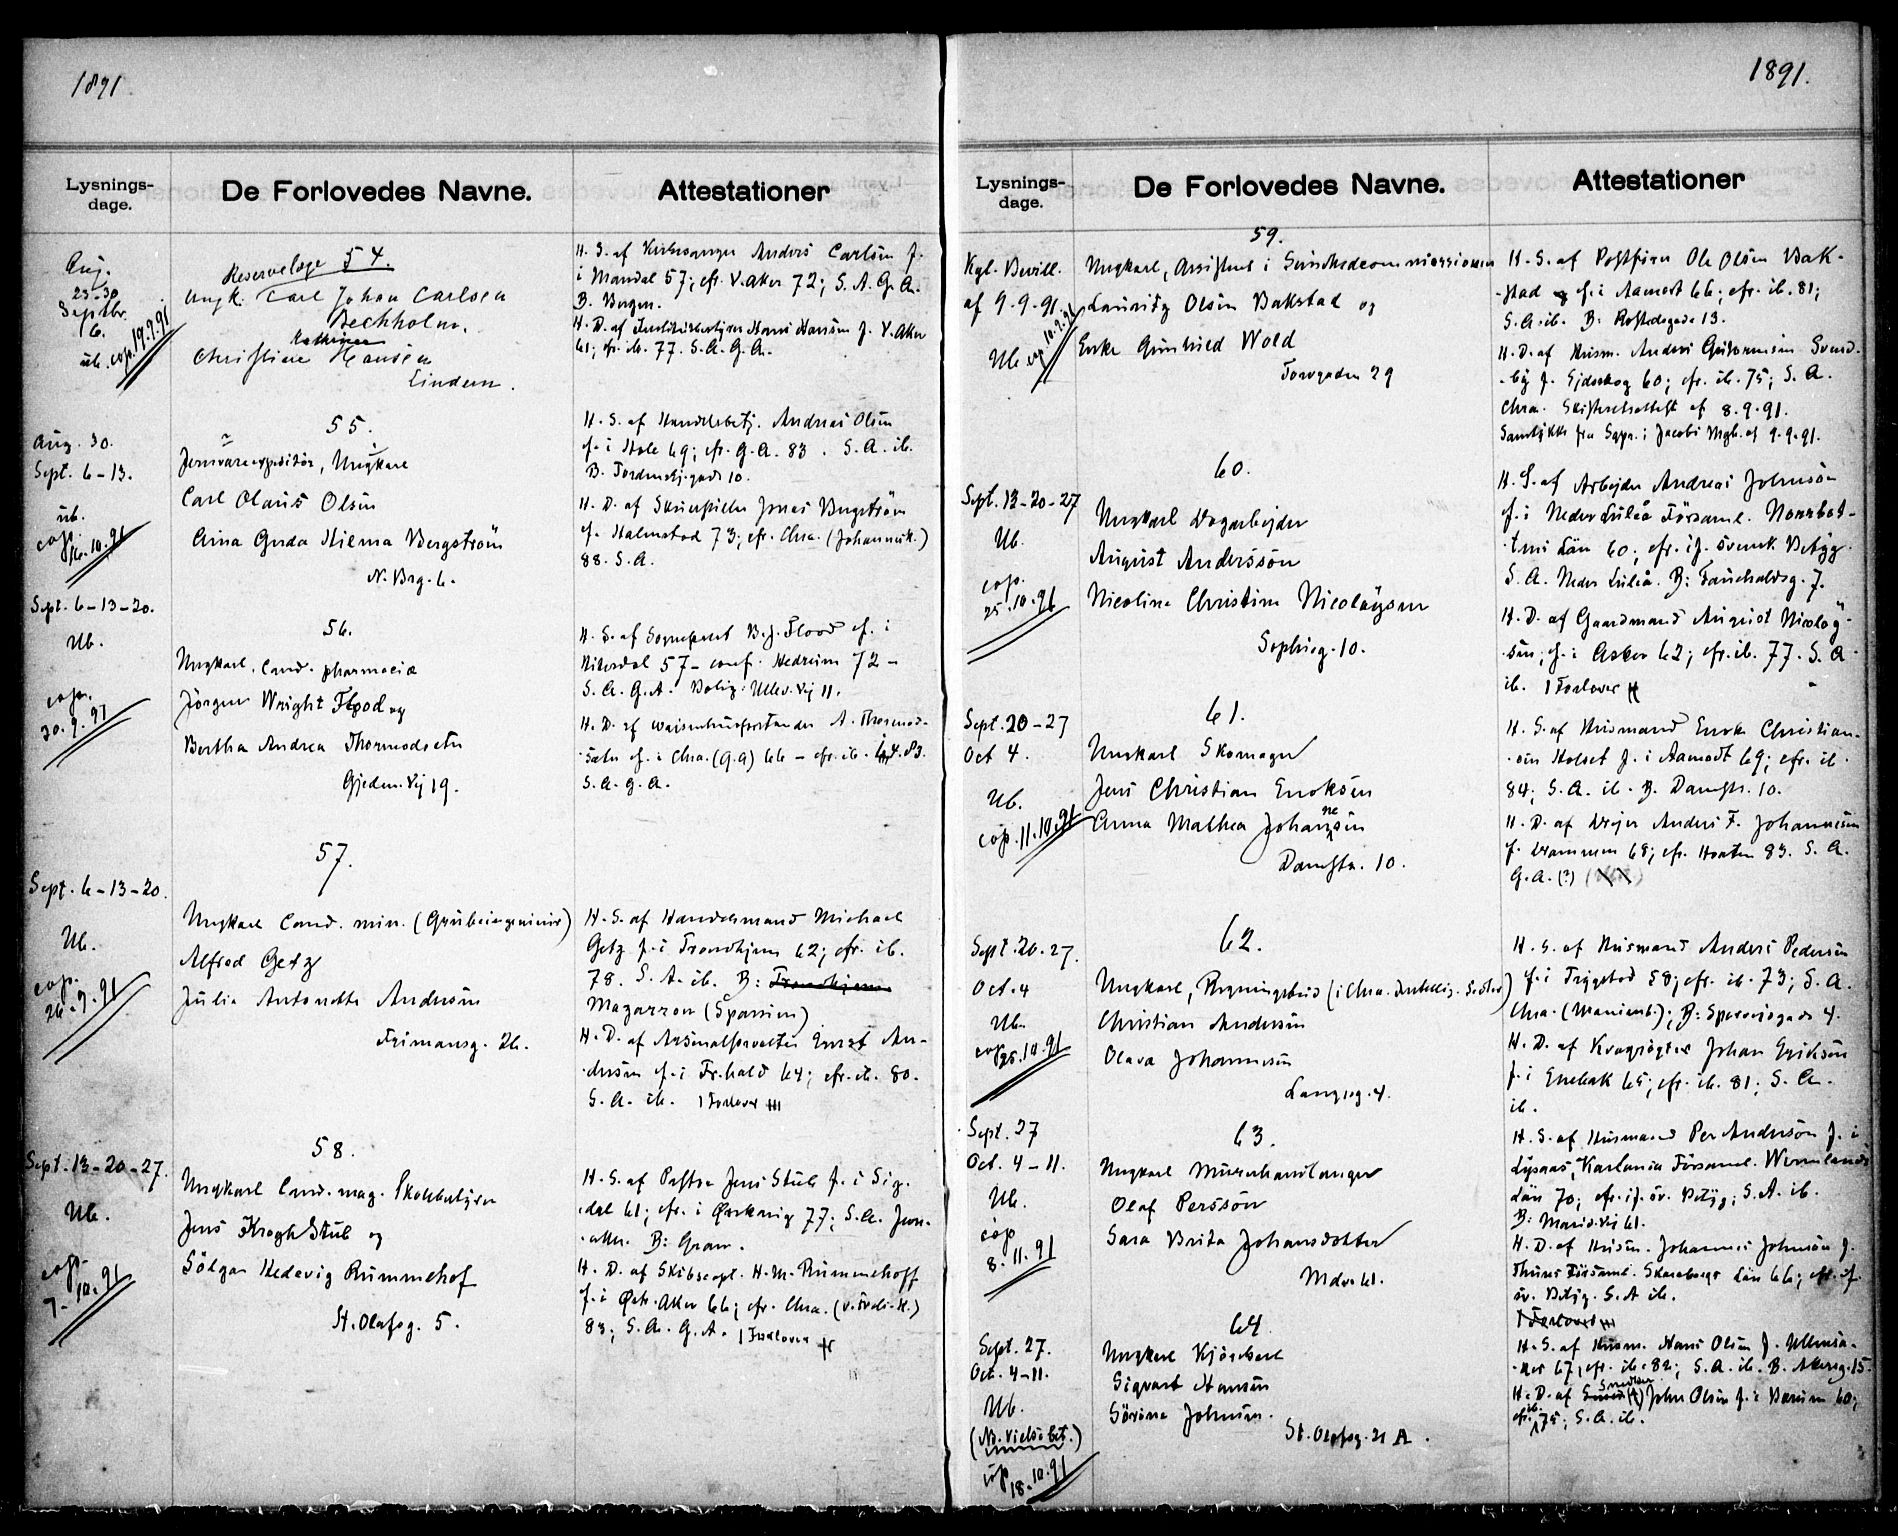 1891
Lysnings-
dage.
De Forlovedes Navne.
Attestationer
Aug.
23-30
Septbr.
6.
ub. cop. 19.9.91
54.
Reservelæge
Ungk. Carl Johan Carlsen
Bechholm.
Kathinca
Christine Hansen
Lindern.
H. S. af Kirkesanger Anders Carlsen f.
i Mandal 57; cfr. V. Aker 72; S. A. G. A.
B. Bergen.
H. D. af Hans Hansen f. V. Aker
61; cfr. ib. 77. S. A. G. A.
Aug. 30.
Sept. 6-13.
ub.
cop.
16.10.91
55.
Jernvareexpeditör, Ungkarl
Carl Olaus Olsen
Anna Gerda Hilma Bergström
N. Brg. 6.
H. S. af Handelsbetj. Andreas Olsen
f. i Hole 69; cfr. G. A. 83. S. A. ib.
B. Tordenskj. gade 10.
H. D. af Skuespiller Jonas Bergström
f. Halmstad 73; cfr. Chra. (Johannesk.)
88. S. A.
Sept. 6-13-20.
Ub.
cop.
30.9.91
56.
Ungkarl. Cand. pharmaciæ
Jörgen Wright Flood og
Bertha Andrea Thormodsæter
Gjedem. Vej 19.
H. S. af Sogneprest B. J. Flood f. i
Nitterdal 57 - conf. Hedrum 72 -
S. A. G. A. Bolig: Ullev. Vej 11.
H. D. af Waisenhusforstander A. Thormod-
sæter f. i Chra. (G. A) 66 - cfr. ib. 83.
S. A. G. A.
57.
Sept. 6-13-20.
Ub.
cop.
26.9.91
Ungkarl Cand. min. (Grubeingeniør)
Alfred Getz
Julia Antonette Andersen
Frimansg. 26.
H. S. af Handelsmand Michael
Getz f. i Trondhjem 62; cfr. ib.
78. S. A. ib. B: Trondhjem
Mazarron (Spanien)
H. D. af Arsenalforvalter Ernst An-
dersen f. i Fr.hald 64; cfr. ib. 80.
S. A. ib. 1 Forlover
58.
Sept. 13-20-27.
Ub.
cop.
7.10.91
Ungkarl Cand. mag. Skolebestyrer
Jens Krogh Stub og
Sölga Hedevig Rummelhof
St. Olafsg. 5.
H. S. af Pastor Jens Stub f. i Sig-
dal 61; cfr. i Ørskoug 77; S. A. Jevn-
aker. B: Gran.
H. D. af Skibscapt. H. M. Rummelhoff
f. i Østr. Aker 66; cfr. Chra. (V. Fredr. K.)
83; S. A. G. A. 1 Forlover
1891.
Lysnings-
dage.
De Forlovedes Navne.
Attestationer
59.
Kgl. Bevill.
af 9.9.91.
Ub. cop. 10.9.91
Ungkarl, Assistent i Sundhedscommissionen
Lauritz Olsen Bakstad og
Enke Gunhild Wold
Torvgaden 29
H. S. af Postfører Ole Olsen Bak-
stad f. i Aamodt 66; cfr. ib. 81;
S. A. ib. B: Rostedsgade 13.
H. D. af Husm. Anders Guttormsen Svend-
by f. Eidskog 60; cfr. ib. 75; S. A.
Chra. Skifteretsattest af 8.9.91.
Samtykke fra Sgpr. i Jacobi Mgh. af 9.9.91.
60.
Sept. 13-20-27
Ub.
cop.
25.10.91
Ungkarl Vegarbejder
August Andersson
Nicoline Christine Nicolaysen
Sophieg. 10.
H. S. af Arbejder Andreas Johnson
f. i Neder Luleå Församl. Norrbot-
tens Län 60; cfr. if. svensk Betyg.
S. A. Neder Luleå. B: Fauchaldsg. 7.
H. D. af Gaardmand August Nicolay-
sen; f. i Asker 62; cfr. ib. 77. S. A
ib. 1 Forlover
61.
Sept. 20-27
Oct 4.
Ub.
cop. 11.10.91
Ungkarl Skomager
Jens Christian Enoksen
Anna Mathea Johannesen
Damstr. 10.
H. S. af Husmand Enok Christian-
sen Holset f. i Aamodt 69; cfr. ib.
84; S. A. ib. B. Damstr. 10.
H. D. af Anders F. Johannesen
f. Drammen 68; cfr. Horten 83. S. A.
G. A. (?)
62.
Sept. 20-27.
Oct. 4
Ub.
cop. 25.10.91
Ungkarl, Regningsbud (i Chra. Intellig. Sedler)
Christian Andersen
Olava Johannesen
Langg. 4.
H. S. af Husmand Anders Pedersen
f. i Trygstad 58; cfr. ib. 73; S. A.
Chra. (Marienb.); B: Sporvejsgade 4.
H. D. af Kvægrögter Johan Eriksen
f. i Enebak 65; cfr. ib. 81; S. A.
ib.
Sept. 27
Oct. 4-11.
Ub.
cop
8.11.91
63.
Ungkarl Murerhandlanger
Olaf Persson
Sara Brita Johansdotter
Mdv. 61.
H. S. af Husmand Per Anderson f. i
Karlanda Församl. Wermlands
Län 70; cfr. if. sv. Betyg; S. A. ib.
B: Marid. Vej 61.
H. D. af Husm. Johannes Johnson f.
Församl. Skaraborgs Län 66; cfr. if.
sv. Betyg. S. A ib.
1 Forlover
64.
Sept. 27.
Oct. 4-11.
Ub.
(NB. Vielsebet.)
cop.
18.10.91
Ungkarl Kjörekarl
Sigvart Hansen
Sörine Johnsen.
St. Olafsg. 21 A.
H. S. af Husm. Hans Olsen f. Ullensa-
ker 67; cfr. ib. 82; S. A. ib. B. Akersg. 15.
H. D. af Snedker John Olsen f. i Bærum 60;
cfr. ib. 75; S. A. ib.